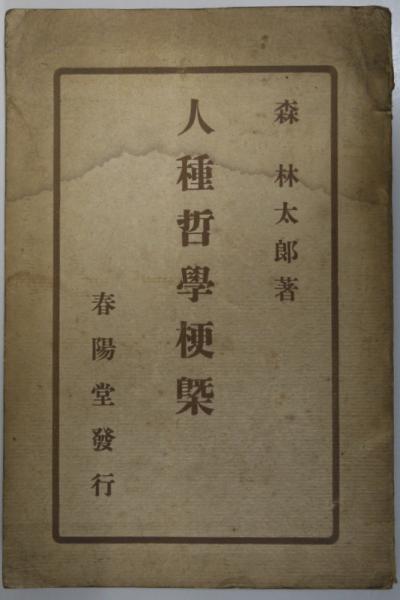 森林太郎著
人種哲學梗槩
春陽堂發行